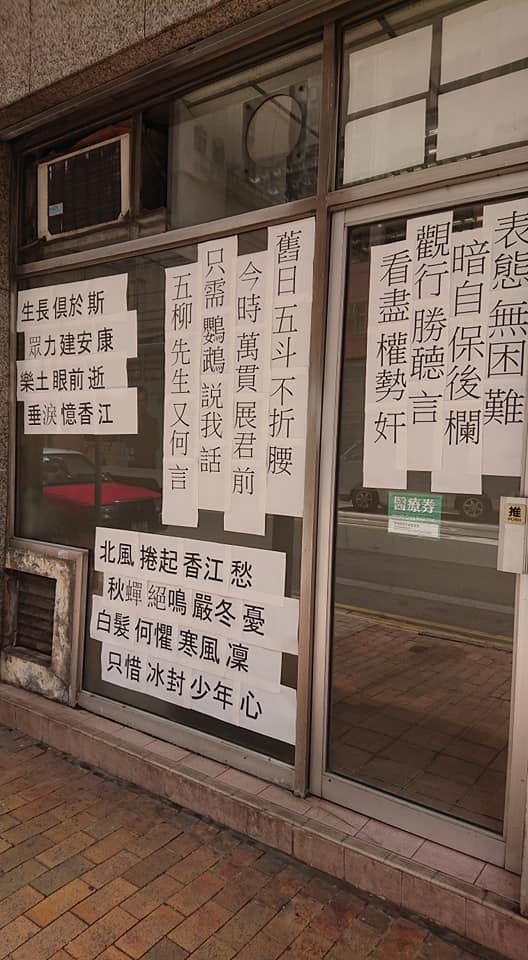 表態無困難
暗自保後欄
觀行勝聽言
看盡權勢奸
舊日五斗不折腰
今時萬貫展君前
只需鸚鵡說我話
五柳先生又何言
生長俱於斯
眾力建安康
樂土眼前逝
垂淚憶香江
北風捲起香江愁
秋蟬絕鳴嚴冬憂
白髮何懼寒風凜
只惜冰封少年心
醫療券
推
PUSH